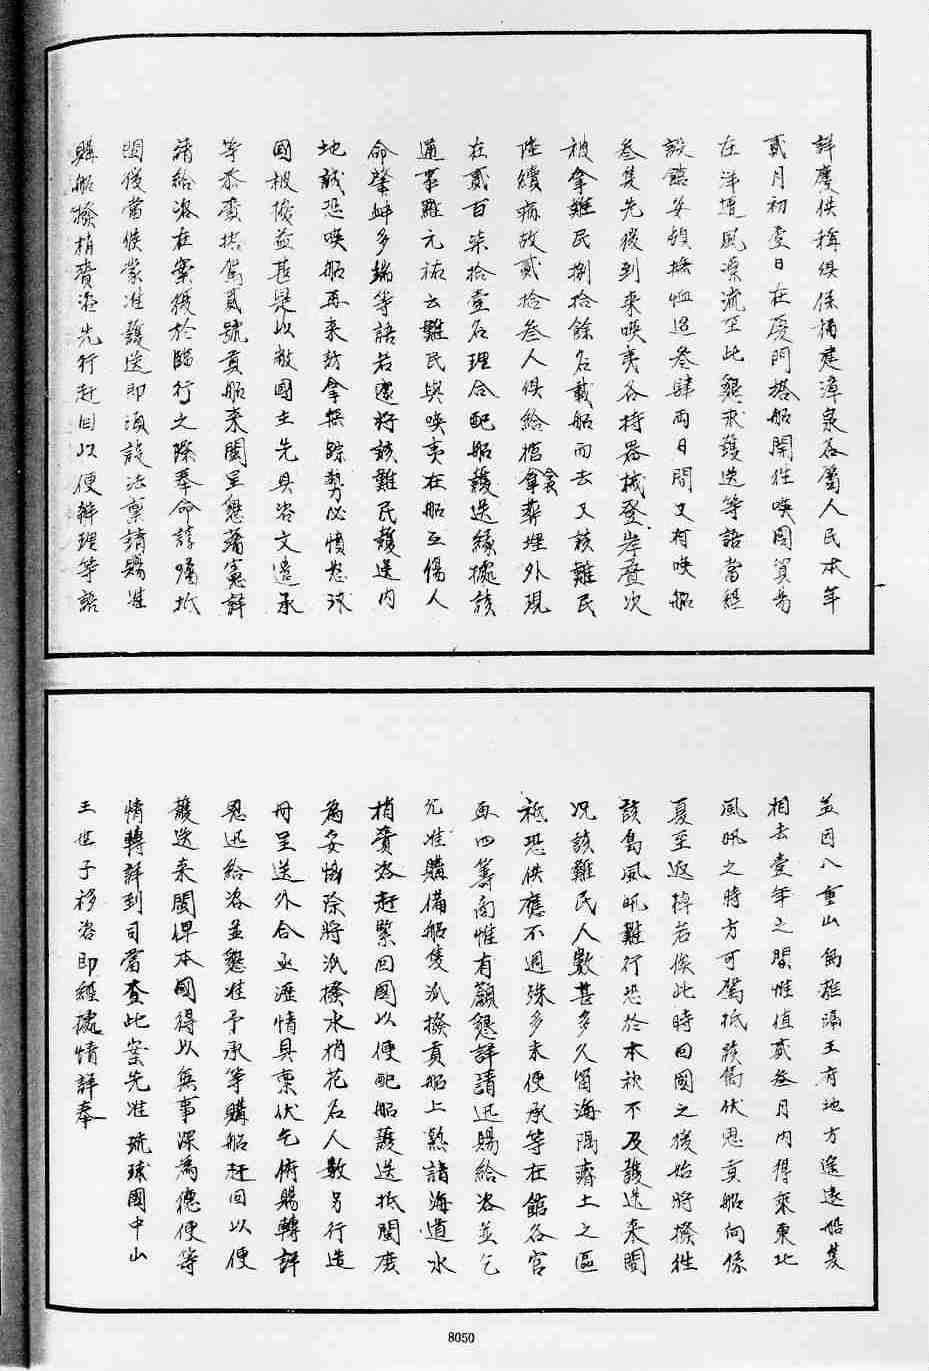 詳慶供稱俱係福建漳泉各屬人民本年
貳月初壹日在厦門搭船開往𠸄國貿易
在洋遭風漂流至此懇求護送等語當經
設館安頓撫恤迨叁肆兩日間又有𠸄船
叁隻先後到來𠸄夷各持器械登岸叠次
被拿難民捌拾餘名載船而去又該難民
陸續病故貳拾叁人俱給棺拿葬埋外現
在貳百柒拾壹名理合配船護送緣據該
通事難元祐云難民與𠸄夷在船互傷人
命肇衅多端等語若遽將該難民護送内
地誠恐𠸄船再来訪拿無踪勢必憤怒球
國被擾益甚是以敝國主先具咨文遣承
等恭賫搭駕貳號貢船来閩呈懇藩憲詳
請給咨在案復於臨行之際奉命諄囑抵
閩後當候蒙准護送即須設法稟請賜准
購船撥梢賫咨先行赶回以便辦理等語
並因八重山島離滿王有地方遙遠船隻
相去壹年之間惟值貳叁月内得乘東北
風帆之時方可駕抵該島伏思貢船向係
夏至返掉若俟此時回國之後始將撥往
該島風帆難行恐於本秋不及護送来閩
况該難民人數甚多久留海隅瘠土之區
祗恐供應不週殊多未便承等在館各官
再四籌商惟有籲懇詳請迅賜給咨並乞
允准購備船隻派撥貢船上熟諳海道水
梢賫咨赶緊回國以便配船護送抵閩庶
為妥協除將派撥水梢花名人數另行造
冊呈送外合亟瀝情具稟伏乞俯賜轉詳
恩迅給咨並懇准予承等購船赶回以便
護送来閩俾本國得以無事深為德便等
情轉詳到司當查此案先准琉球國中山
王世子移咨即經據情詳奉
8050